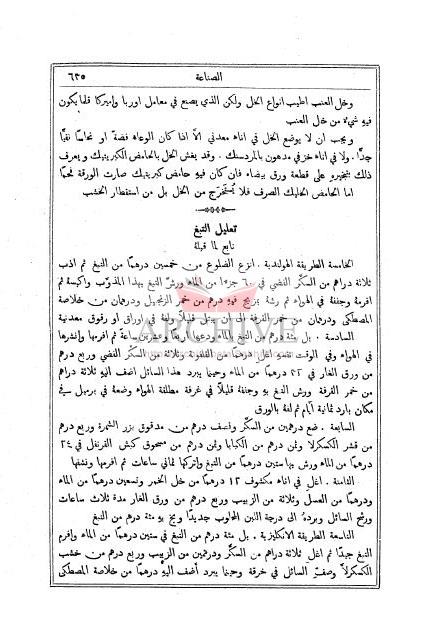 الصناعة ٦٣٥
وخل العنب اطيب انواع الخل ولكن الذي يصنع في معامل اوربا واميركا قلما يكون
فيهِ شيءٌ من خل العنب
ويجب ان لا يوضع الخل في اناء معدني الّا اذا كان الوعاء فضة او نحاسًا نقيًّا
جدًّا. ولا في اناء خزفي مدهون بالمردسنك. وقد يغش الخل بالحامض الكبريتيك ويعرف
ذلك بتبخيرهِ على قطعة ورق بيضاء فان كان فيهِ حامض كبريتيك صارت الورقة فحمًا
اما الحامض الخليك الصرف فلا يُستخرَج من الخل بل من استقطار الخشب
تعليل التبغ
تابع لما قبلهُ
الخامسة الطريقة الهولندية. انزع الضلوع من خمسين درهمًا من التبغ ثم اذب
ثلاثة دراهم من السكّر النضي في ٦٠ جزءًا من الماء ورشّ التبغ بهذا المذوّب واكبسهُ ثم
افرمهُ وجففهُ في الهواء ثم رشهُ بمزيج فيهِ درهم من خمر الزنجبيل ودرهمان من خلاصة
المصطكى ودرهمان من خمر القرفة الى ان يبتل قليلًا ولفهُ في اوراق او رقوق معدنية
السادسة. بل مئة درهم من التبغ بالماء ودعها اربعًا وعشرين ساعة ثم افرمها وانشرها
في الهواء وفي الوقت نفسهِ اغلِ درهمًا من القلفونة وثلاثة من السكّر النضي وربع درهم
من ورق الغار في ٣٢ درهمًا من الماء وحينما يبرد هذا السائل اضف اليهِ ثلاثة دراهم
من خمر القرفة ورش التبغ بهِ وجففهُ قليلًا في غرفة مطلقة الهواء وضعهُ في برميل في
مكان بارد ثمانية ايام ثم لفهُ بالورق
السابعة. ضع درهمين من السكّر ونصف درهم من مدقوق بزر الشمرة وربع درهم
من قشر الكسكرلا وثمن درهم من الكبابا وثمن درهم من مسحوق كبش القرنفل في ٢٤
درهمًا من الماء ورش بها ستين درهمًا من التبغ واتركها ثماني ساعات ثم افرمها ونشفها
الثامنة. اغلِ في اناء مكشوف ١٢ درهمًا من خل الخمر وتسعين درهمًا من الماء
ودرهمًا من العسل وثلاثة من الزبيب وربع درهم من ورق الغار مدة ثلاث ساعات
ورشح السائل وبردهُ الى درجة اللبن المحلوب جديدًا وبخ بهِ مئة درهم من التبغ
التاسعة الطريقة الانكليزية. بل مئة درهم من التبغ في ستين درهمًا من الماء وافرم
التبغ جيدًا ثم اغلِ ثلاثة دراهم من السكّر ودرهمين من الزبيب وربع درهم من خشب
الكسكرلّا وصفِّ السائل في خرقة وحينما يبرد أضف اليهِ درهمًا من خلاصة المصطكى
ARCHIVE